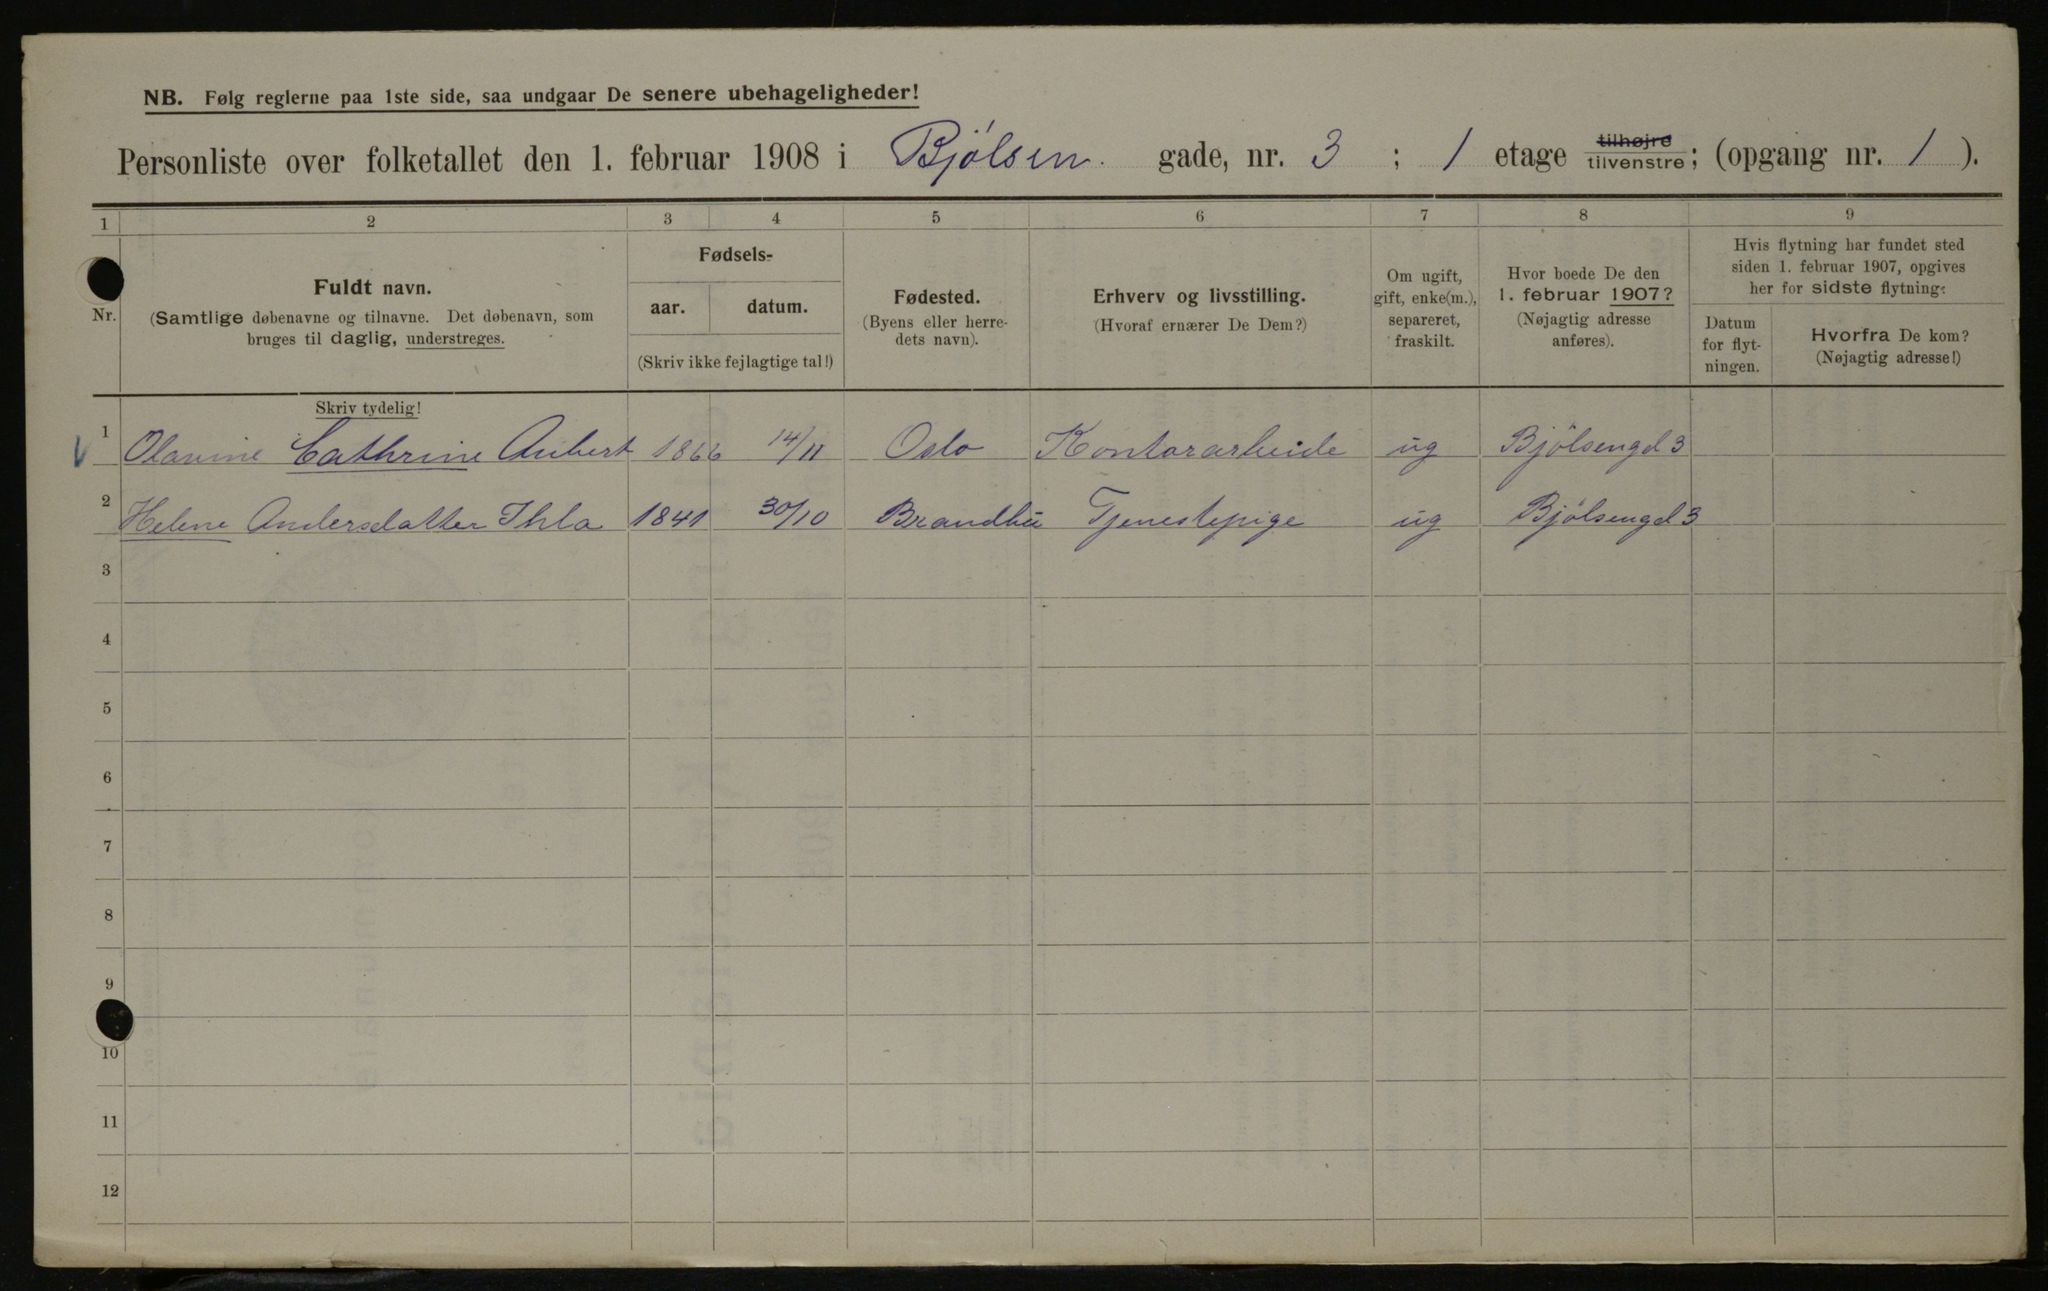 NB. Følg reglerne paa 1ste side, saa undgaar De senere ubehageligheder!
Personliste over folketallet den 1. februar 1908 i Bjölsen gade, nr. 3 ; 1 etage tilhøjre tilvenstre; (opgang nr. 1 ).
1 2 3 4 5 6 7 8 9
Nr.
Fuldt navn.
(Samtlige døbenavne og tilnavne. Det døbenavn, som
bruges til daglig, understreges.
Skriv tydelig!
Fødsels-
aar. datum.
(Skriv ikke fejlagtige tal!)
Fødested.
(Byens eller herre-
dets navn).
Erhverv og livsstilling.
(Hvoraf ernærer De Dem?)
Om ugift,
gift, enke(m.),
separeret,
fraskilt.
Hvor boede De den
1. februar 1907?
(Nøjagtig adresse
anføres).
Hvis flytning har fundet sted
siden 1. februar 1907, opgives
her for sidste flytning:
Datum
for flyt-
ningen.
Hvorfra De kom?
(Nøjagtig adresse!)
1 Olavine Cathrine Aubert 1866 14/11 Oslo Kontorarbeide ug Bjölsengd 3
2 Helene Andersdatter Ihla 1841 30/10 Brandbu Tjenestepige ug Bjölsengd 3
3
4
5
6
7
8
9
10
11
12